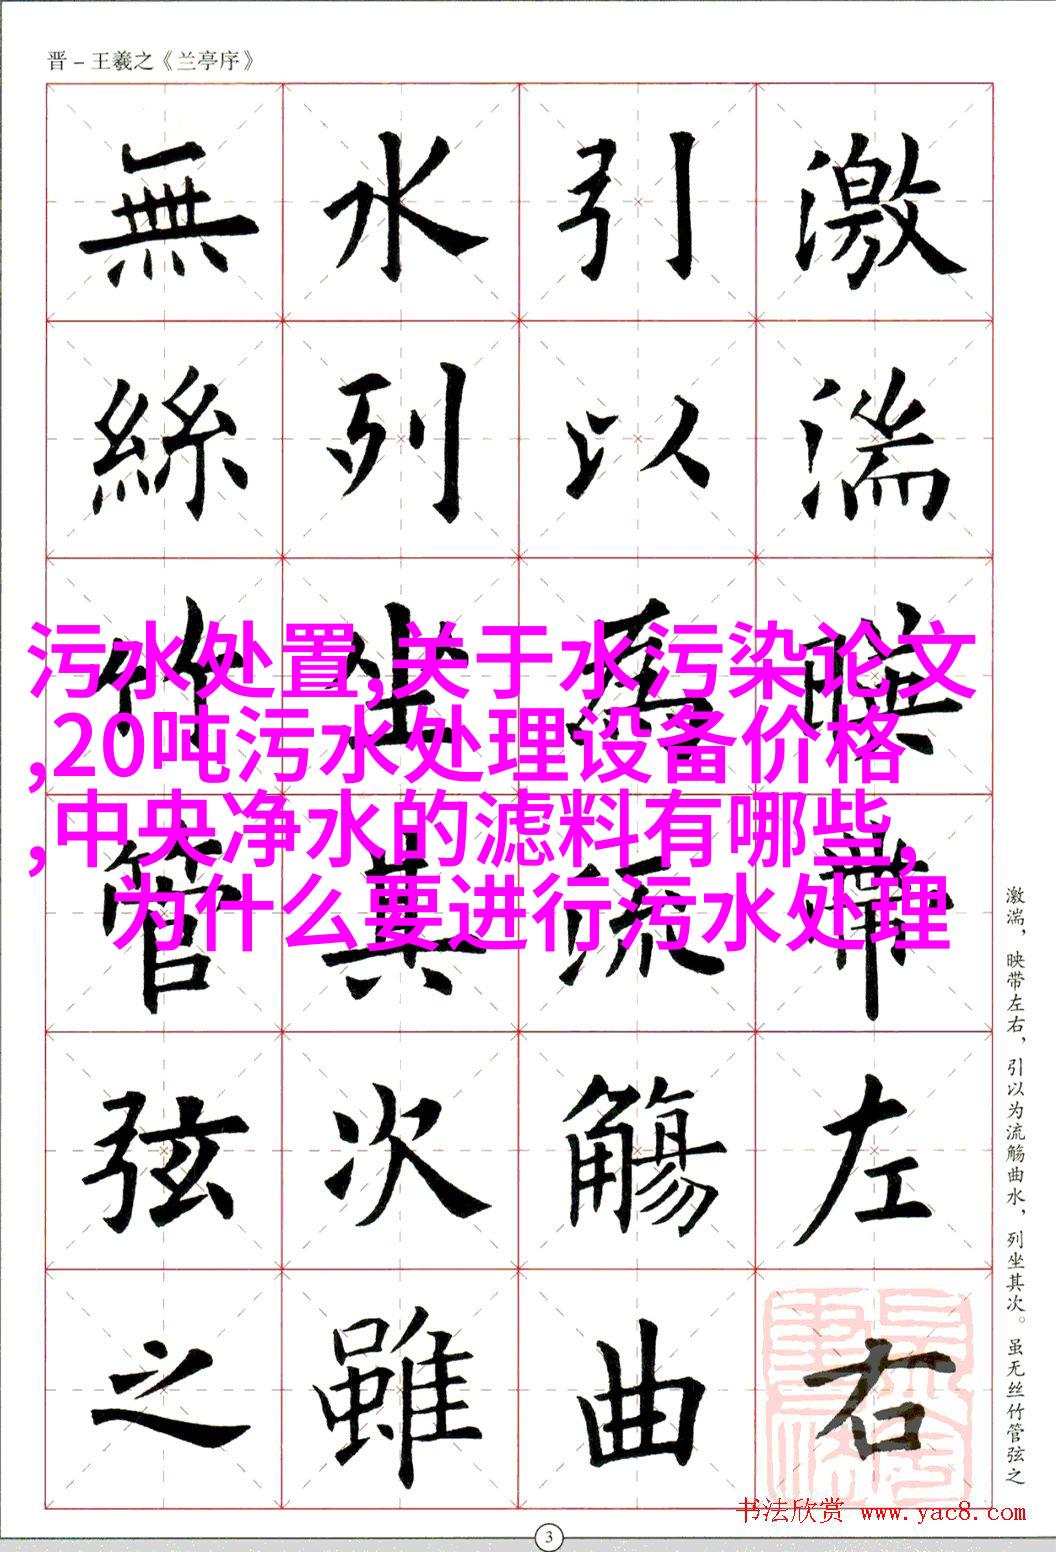 晋－王羲之《兰亭序》
激湍暎带左右
引以為流觴曲
水列坐其次雖
無絲竹管弦之
污水处置,关于水污染论文
,20吨污水处理设备价格
,中央净水的滤料有哪些,
为什么要进行污水处理
激湍，映带左右，引以为流觞曲水，列坐其次。虽无丝竹管弦之
书法欣赏 www.yac8.com
3